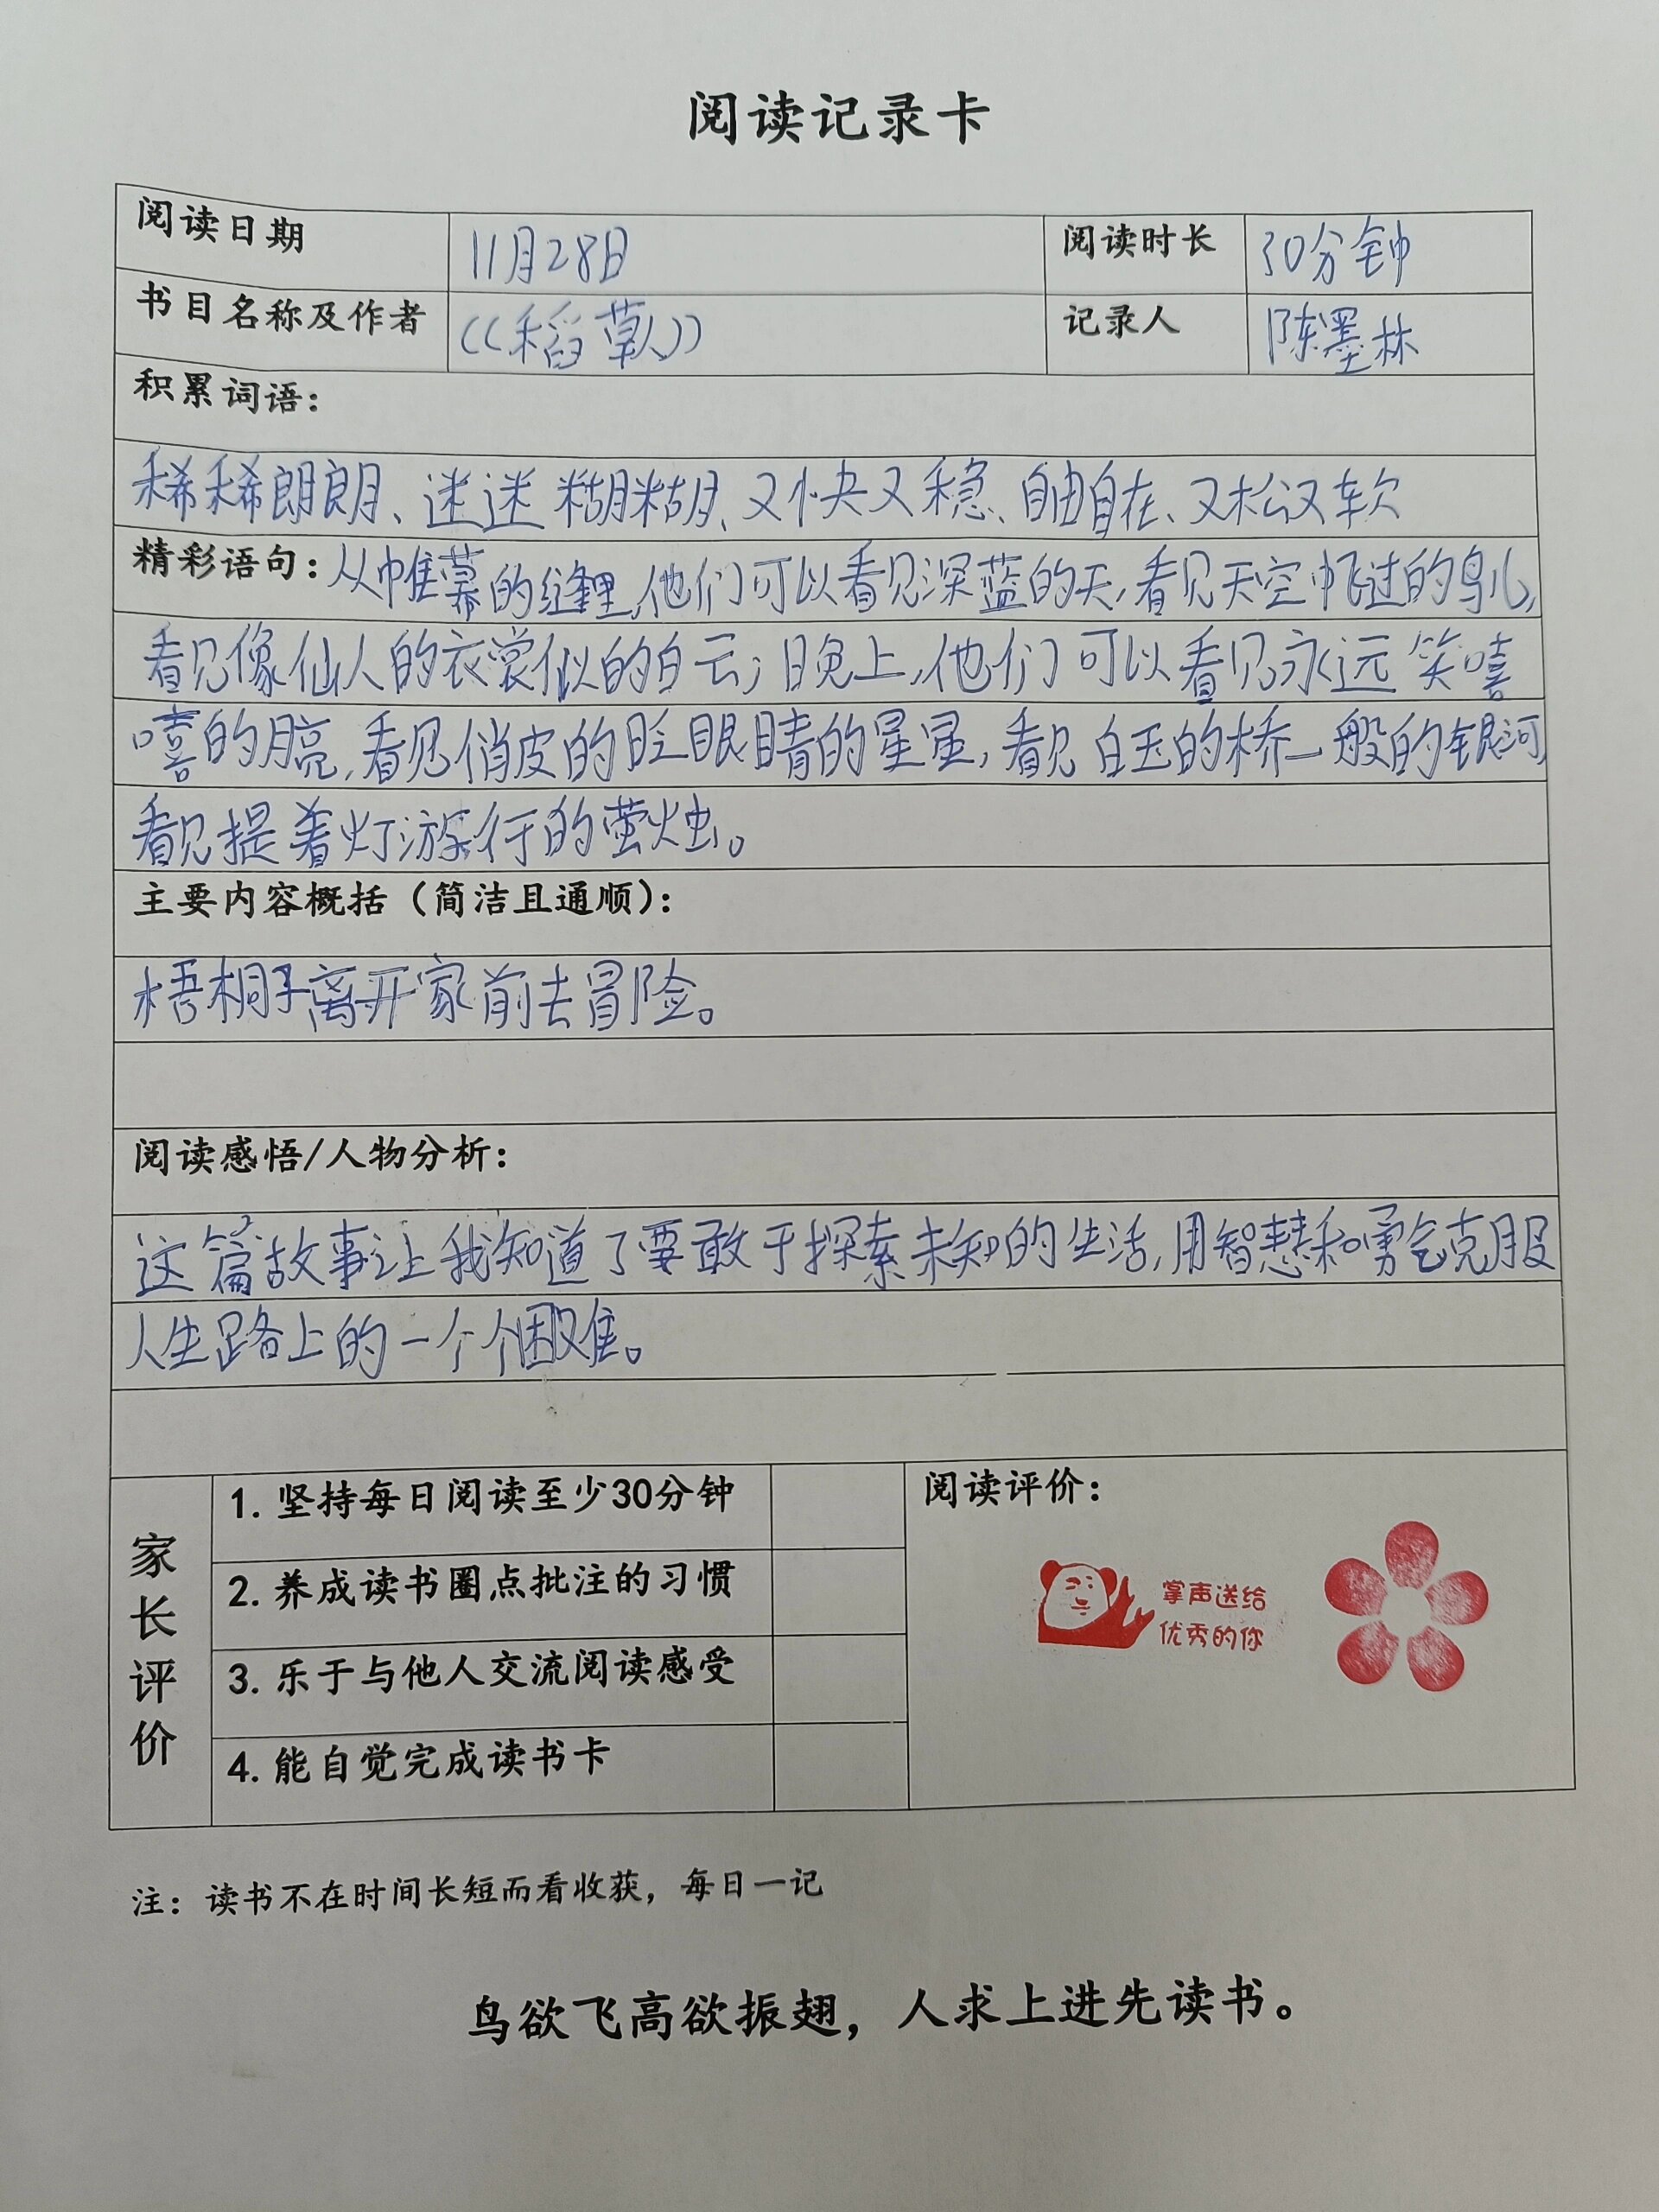 阅读记录卡
阅读日期 11月28日 阅读时长 30分钟
书目名称及作者 《稻草人》 记录人 陈墨林
积累词语：
稀稀朗朗、迷迷糊糊、又快又稳、自由自在、又松又软
精彩语句：从帷幕的缝里，他们可以看见深蓝的天，看见天空中飞过的鸟儿，
看见像仙人的衣裳似的白云；晚上，他们可以看见永远笑嘻
嘻的月亮，看见俏皮的眨眼睛的星星，看见白玉的桥一般的银河，
看见提着灯游行的萤火虫。
主要内容概括（简洁且通顺）：
梧桐子离开家前去冒险。
阅读感悟/人物分析：
这篇故事让我知道了要敢于探索未知的生活，用智慧和勇气克服
人生路上的一个个困难。
家长评价
1. 坚持每日阅读至少30分钟
2. 养成读书圈点批注的习惯
3. 乐于与他人交流阅读感受
4. 能自觉完成读书卡
阅读评价：
掌声送给
优秀的你
注：读书不在时间长短而看收获，每日一记
鸟欲飞高欲振翅，人求上进先读书。